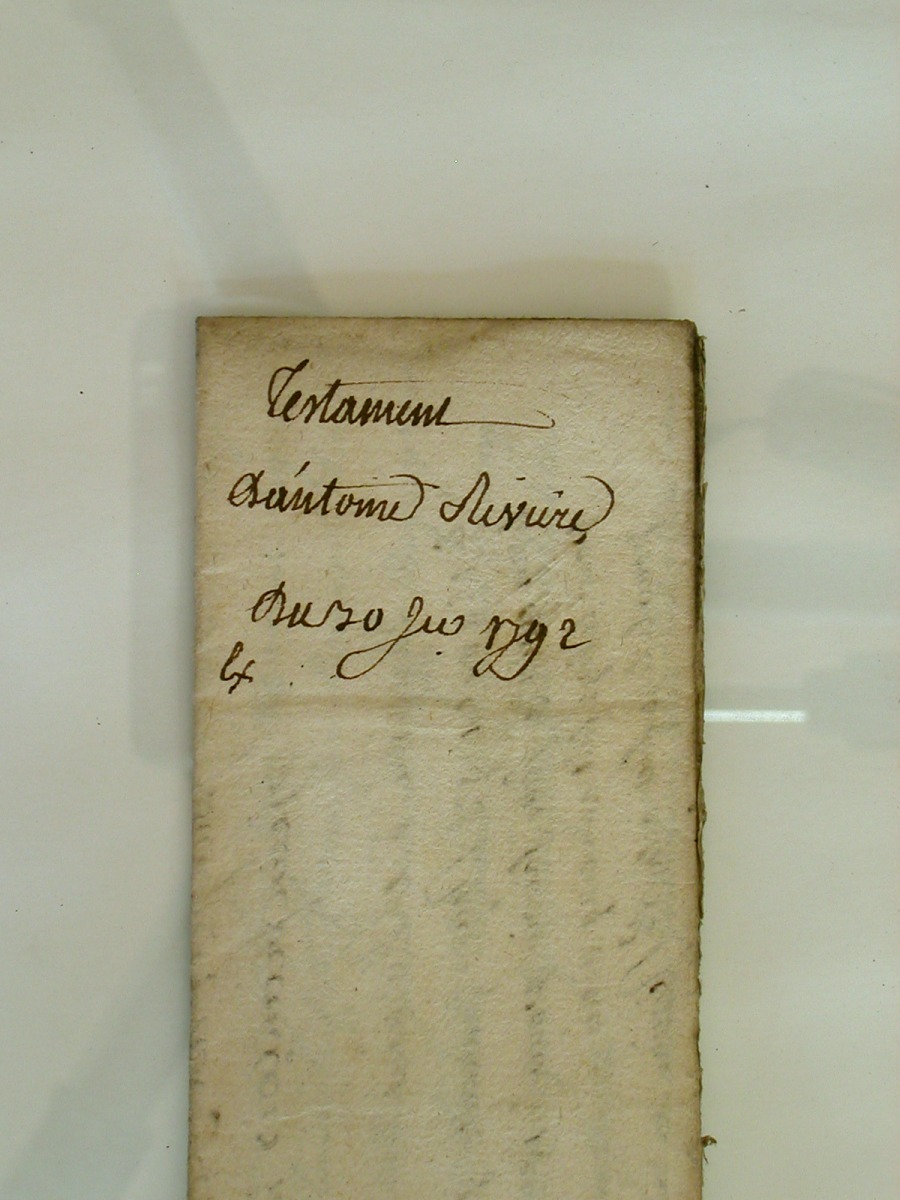 Testament
D'antoine Riviere
Du 30 1792